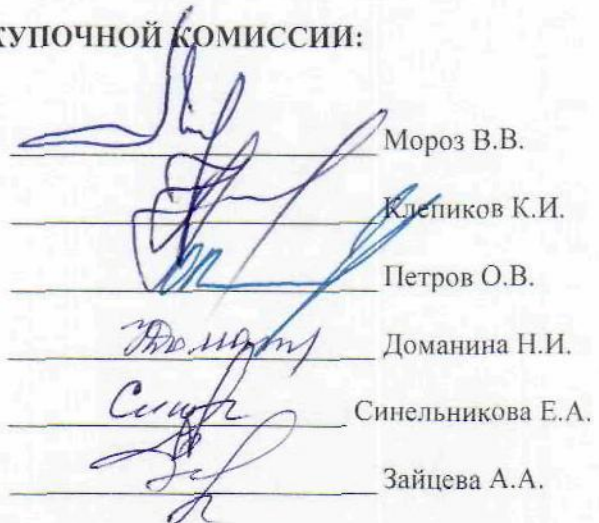 КУПОЧНОЙ КОМИССИИ:
Мороз В.В.
Клепиков К.И.
Петров О.В.
Доманина Н.И.
Синельникова Е.А.
Зайцева А.А.